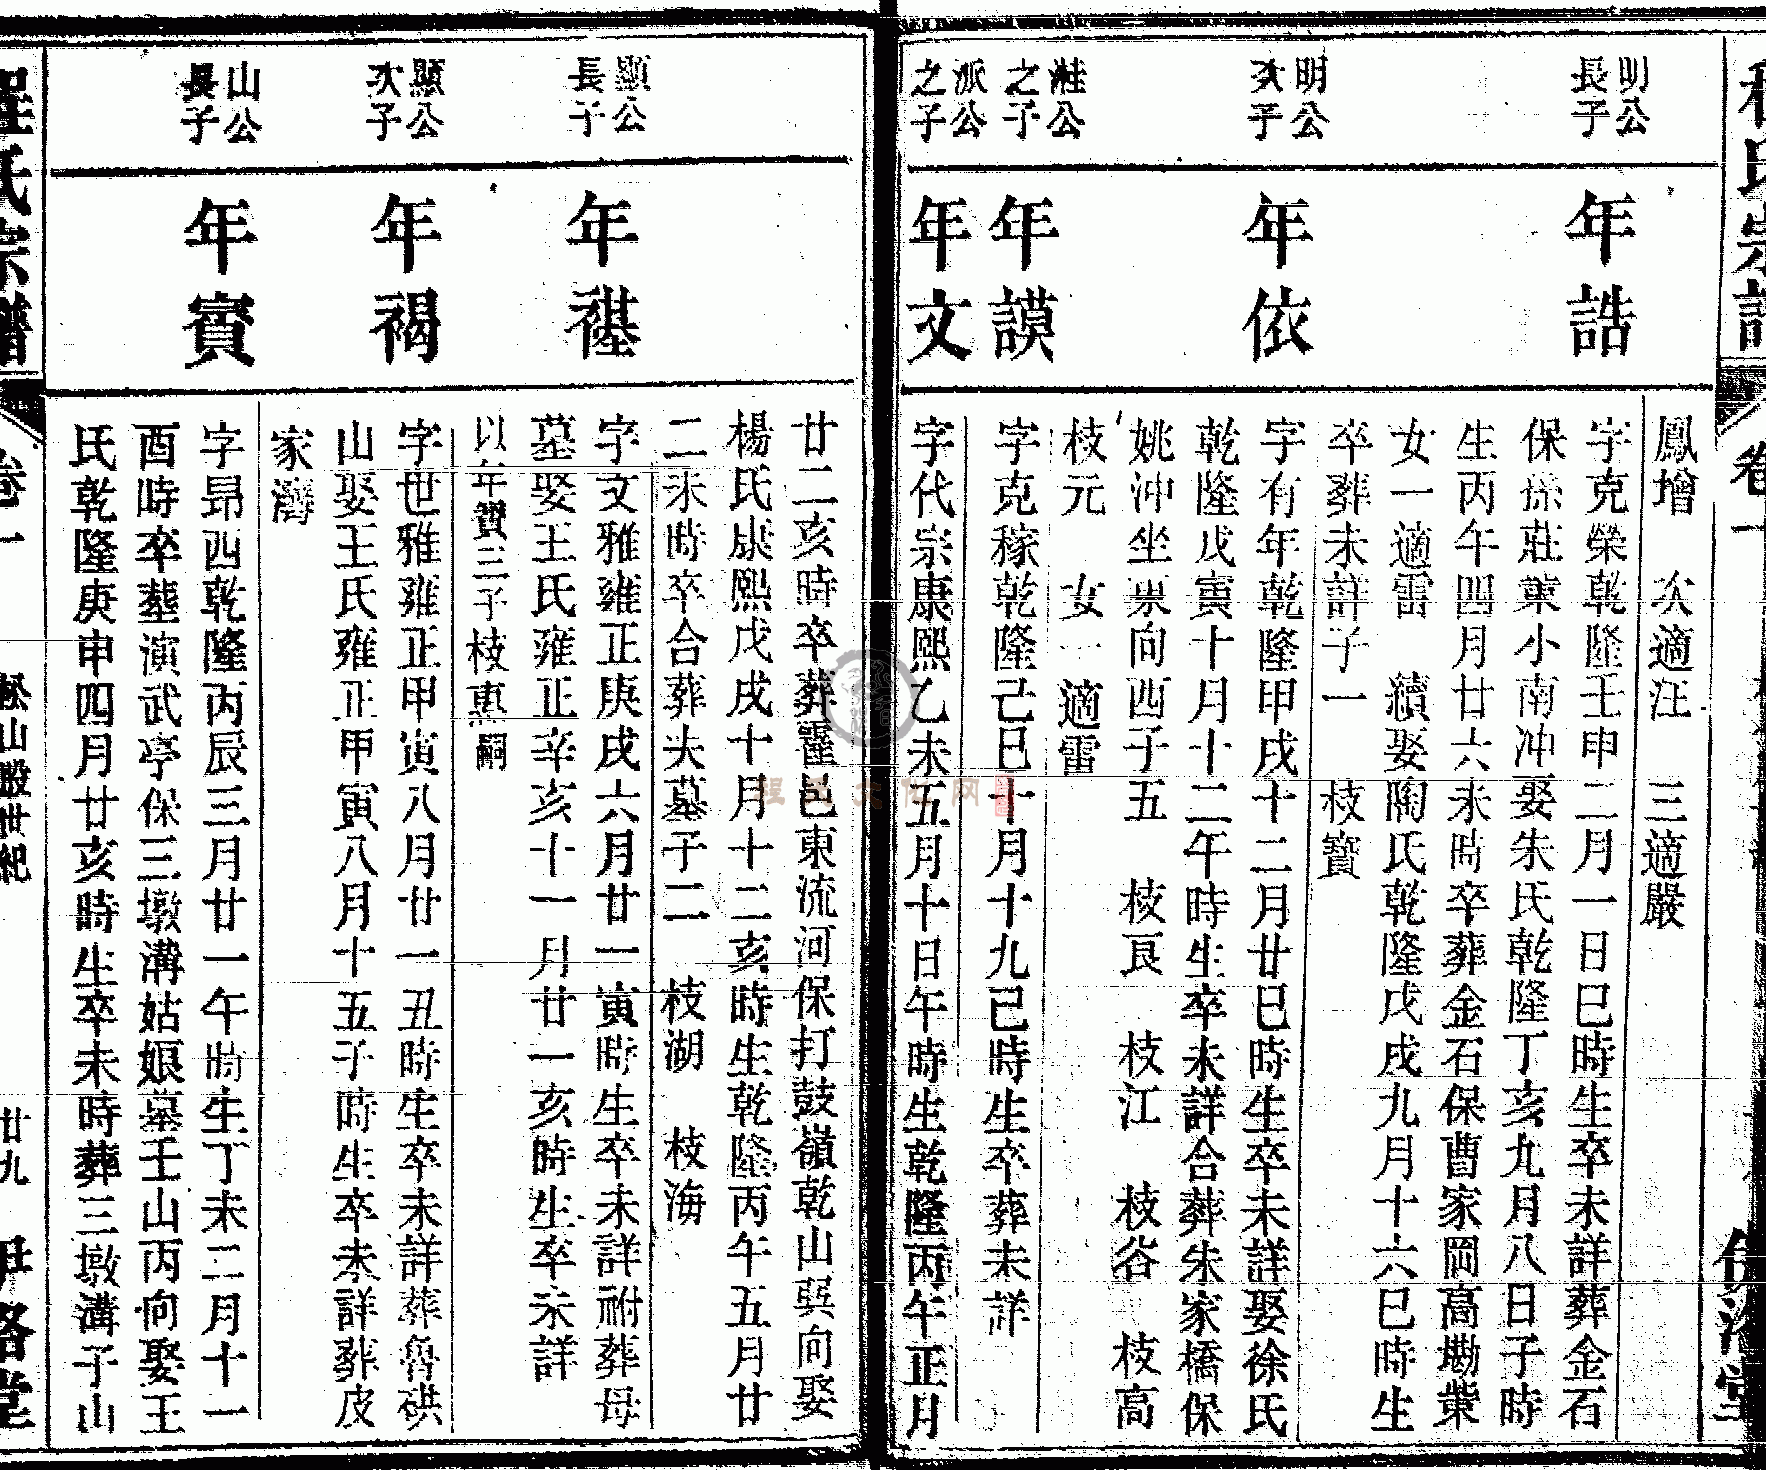 程氏宗譜
卷一
伊洛堂
鳳增　次適汪　三適嚴
明公
長子
年誥
字克榮乾隆壬申二月一日巳時生卒未詳葬金石
保孫莊東小南沖娶朱氏乾隆丁亥九月八日子時
生丙午四月廿六未時卒葬金石保曹家岡高墈葉
女一適雷　續娶陶氏乾隆戊戌九月十六巳時生
卒葬未詳子一　枝寶
明公
次子
年依
字有年乾隆甲戌十二月廿巳時生卒未詳娶徐氏
乾隆戊寅十月十二午時生卒未詳合葬朱家橋保
姚沖坐東向西子五　枝良　枝江　枝谷　枝高
枝元　女一適雷
公
之子
年謨
字克稼乾隆己巳十月十九巳時生卒葬未詳
派公
之子
年文
字代宗康熙乙未五月十日午時生乾隆丙午正月
廿二亥時卒葬霍邑東流河保打鼓嶺乾山巽向娶
楊氏康熙戊戌十月十二亥時生乾隆丙午五月廿
二未時卒合葬夫墓子二　枝湖　枝海
顯公
長子
年禥
字文雅雍正庚戌六月廿一寅時生卒未詳祔葬母
墓娶王氏雍正辛亥十一月廿一亥時生卒未詳
以年賓三子枝惠嗣
顯公
次子
年褐
字世雅雍正甲寅八月廿一丑時生卒未詳葬魯硔
山娶王氏雍正甲寅八月十五子時生卒未詳葬皮
家灣
山公
長子
年賓
字昻西乾隆丙辰三月廿一午時生丁未二月十一
酉時卒塟演武亭保三墩溝姑娘墓壬山丙向娶王
氏乾隆庚申四月廿亥時生卒未時葬三墩溝子山
程氏宗譜
卷一
松山殿世紀
廿九
伊洛堂